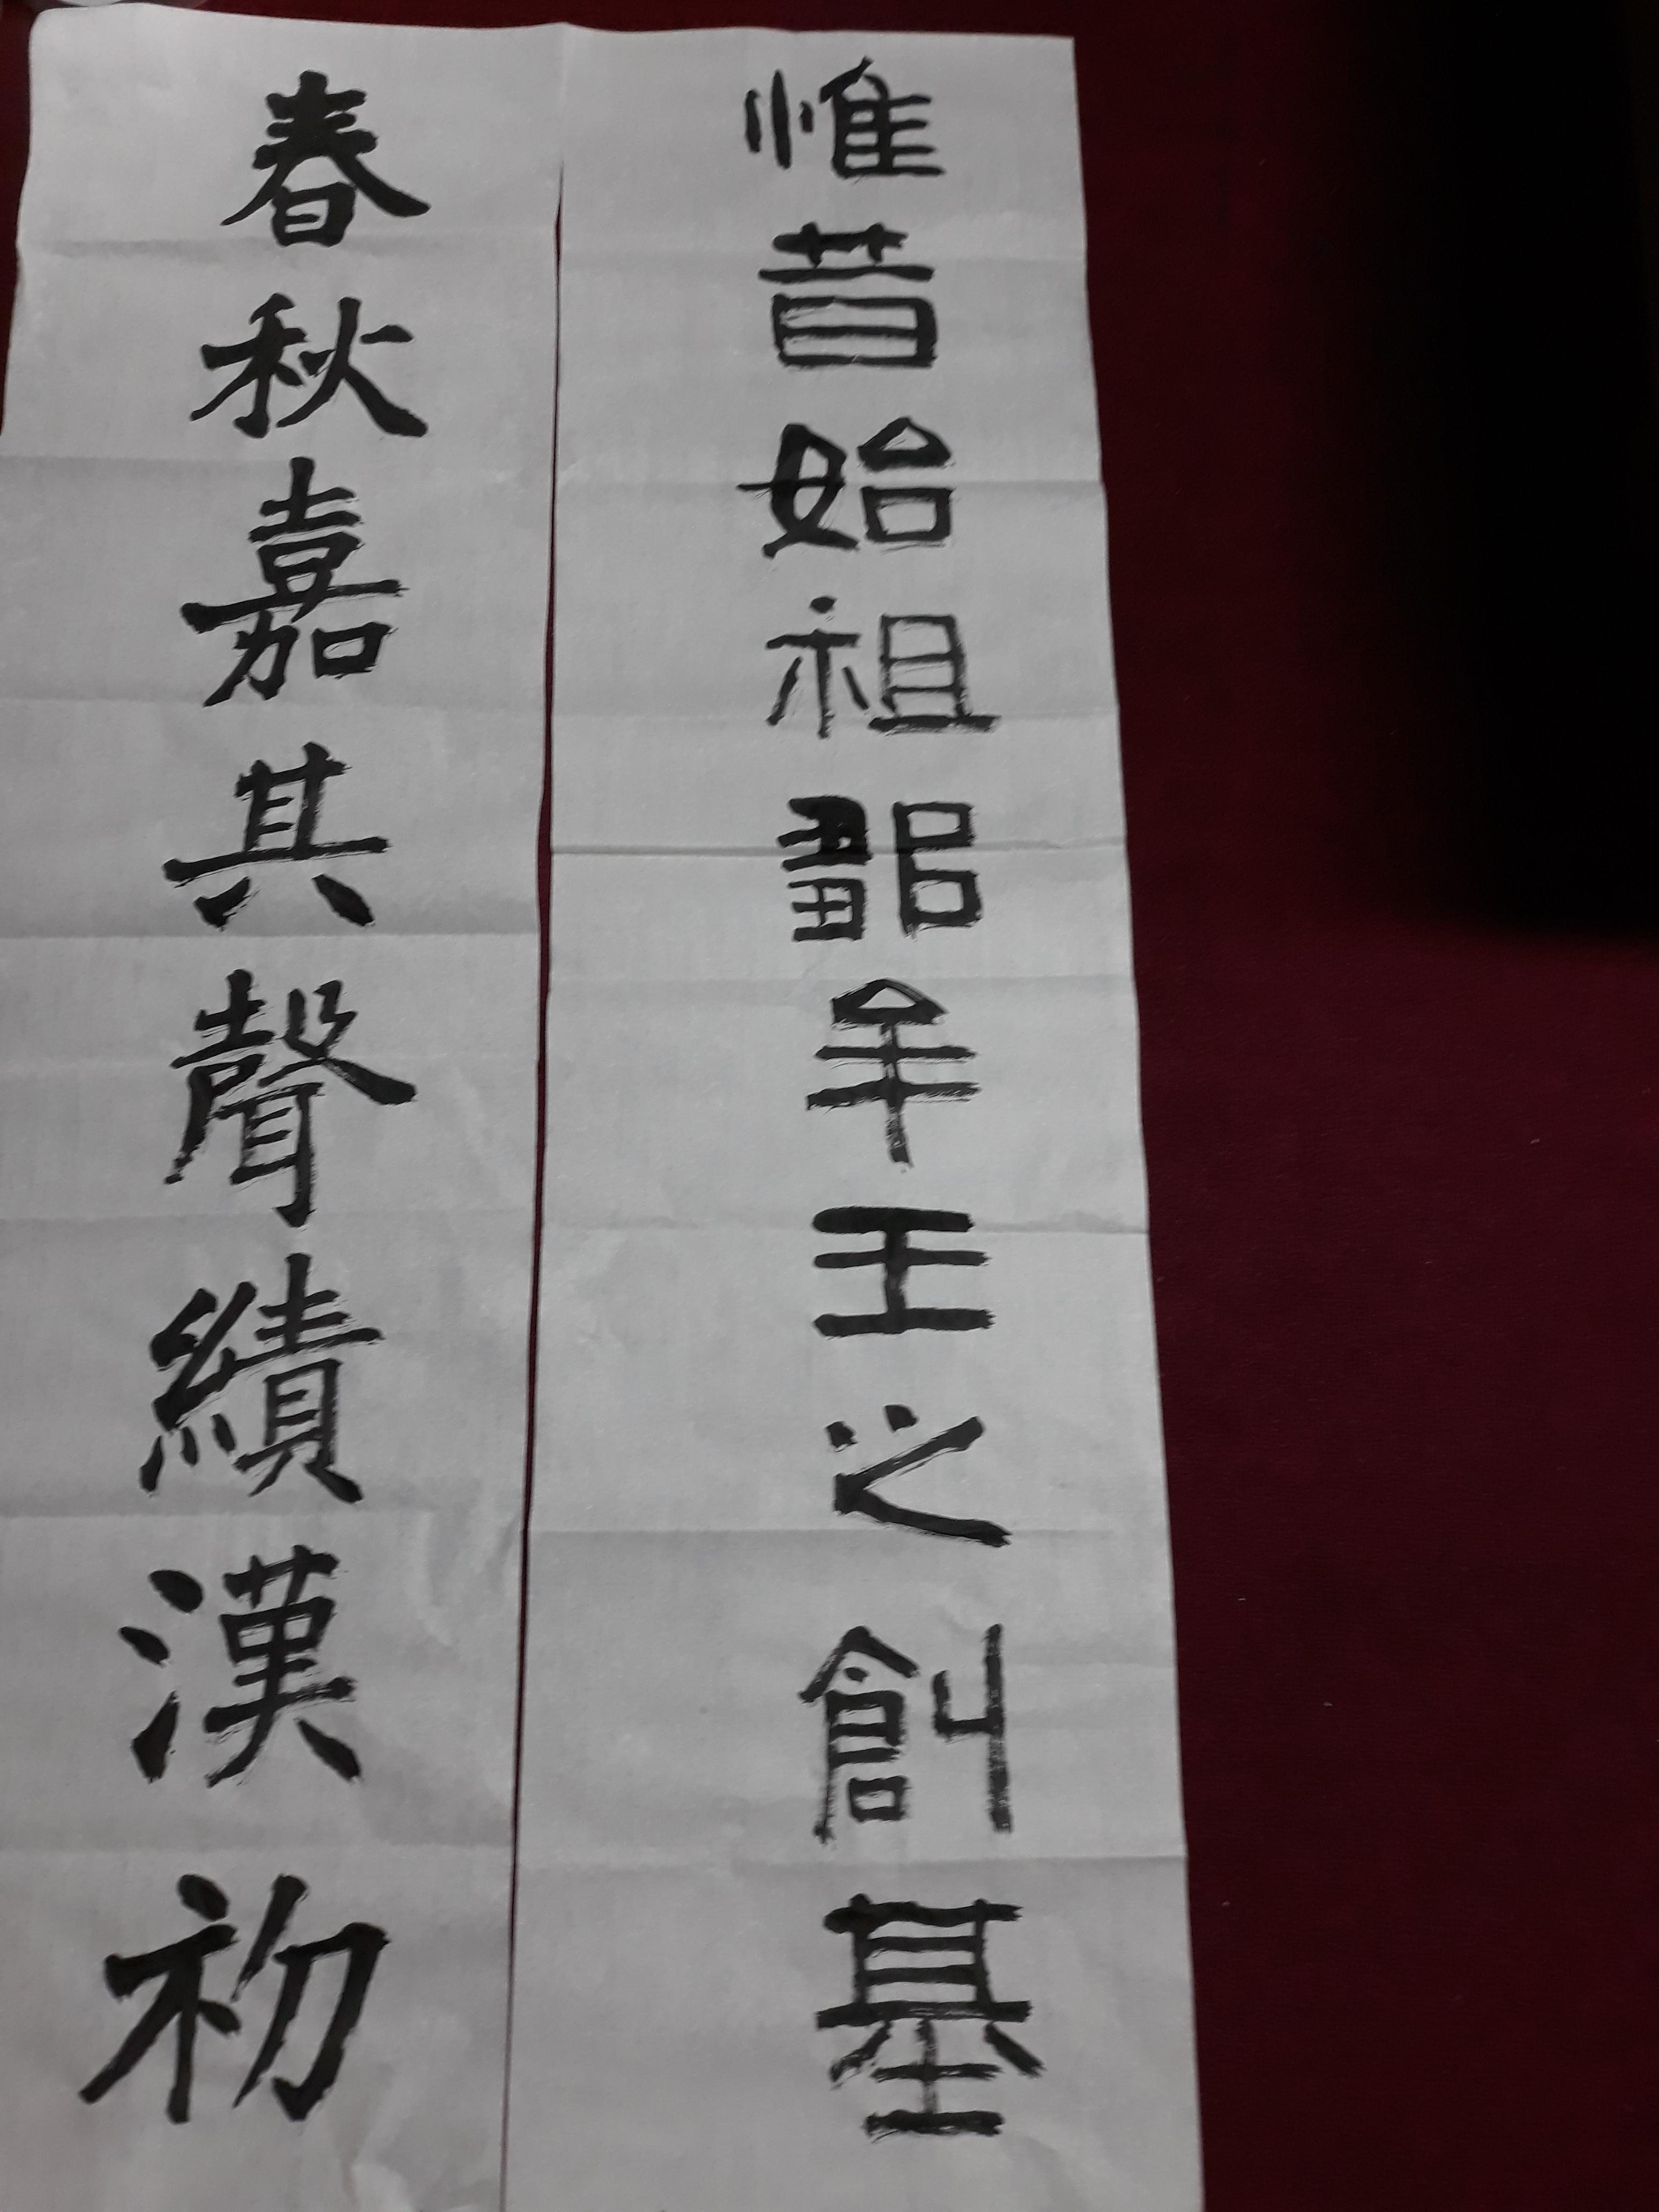 惟昔始祖鄒牟王之創基
春秋嘉其聲績漢初